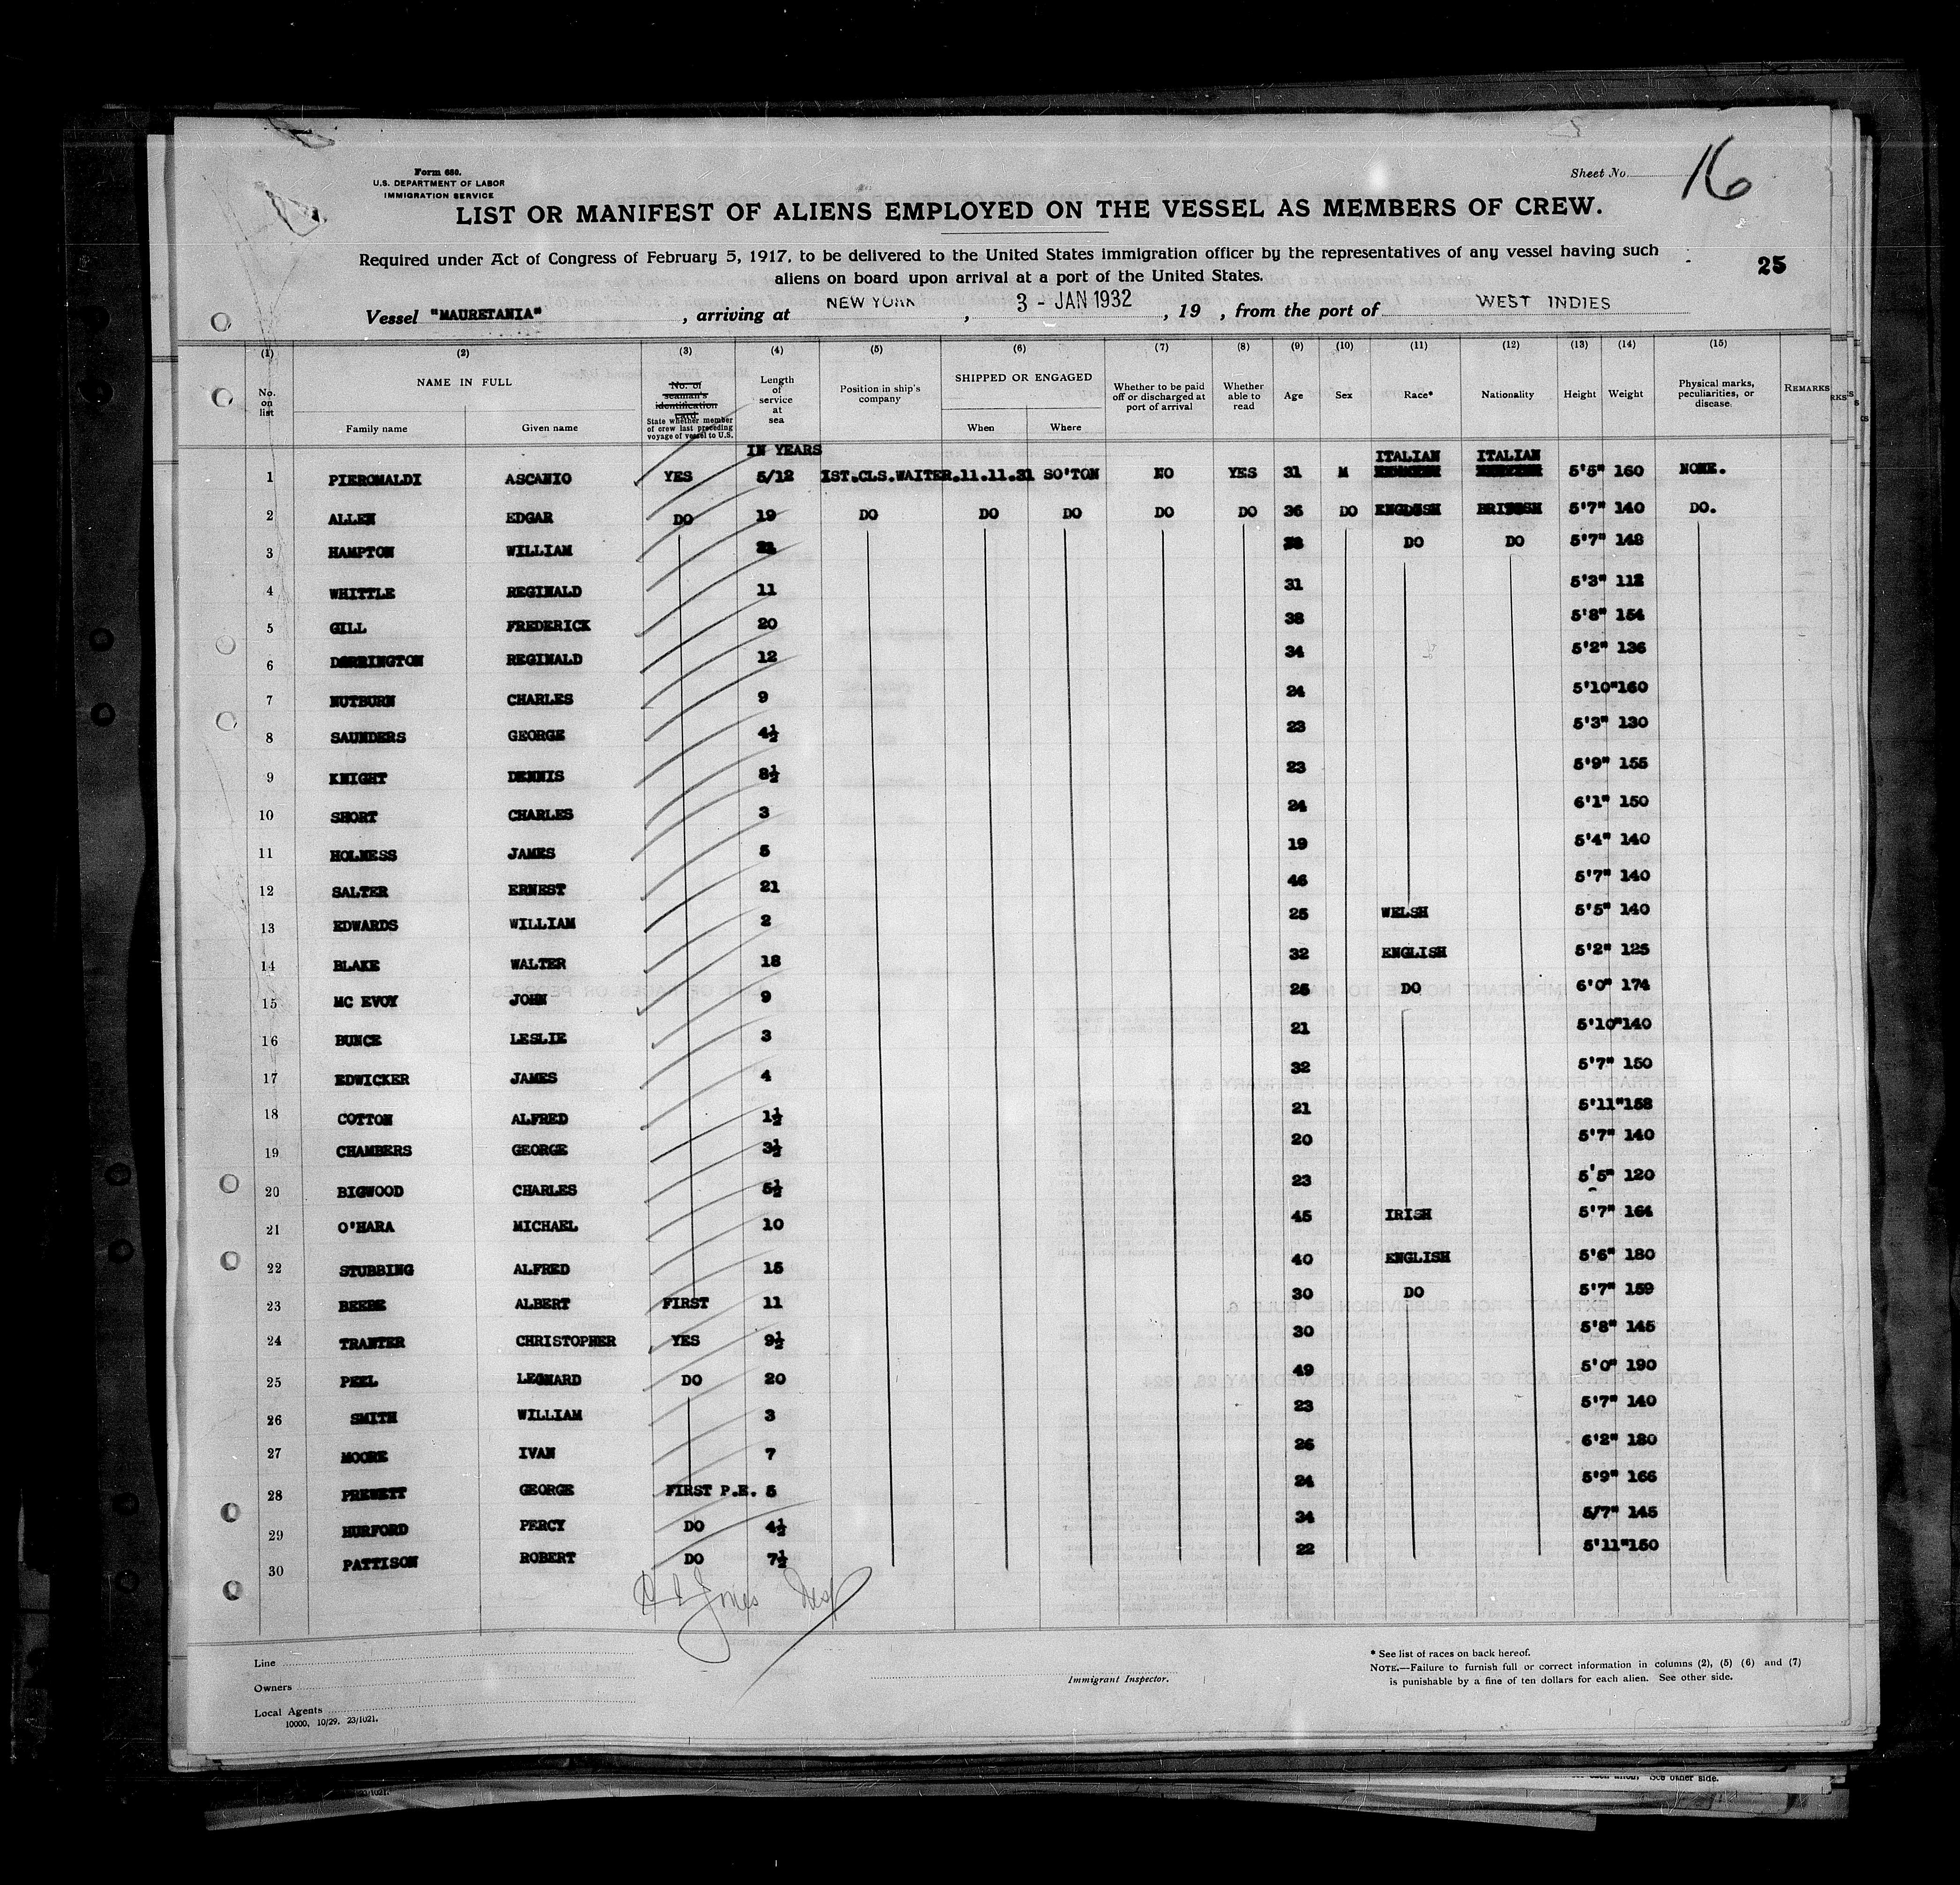 Form 680.
U.S. DEPARTMENT OF LABOR
IMMIGRATION SERVICE
Sheet No. 16
LIST OR MANIFEST OF ALIENS EMPLOYED ON THE VESSEL AS MEMBERS OF CREW.
Required under Act of Congress of February 5, 1917, to be delivered to the United States immigration officer by the representatives of any vessel having such
aliens on board upon arrival at a port of the United States.
25
Vessel "MAURETANIA", arriving at NEW YORK, 3 - JAN 1932, 19 , from the port of WEST INDIES
(1) (2) (3) (4) (5) (6) (7) (8) (9) (10) (11) (12) (13) (14) (15)
No. on list
NAME IN FULL
Family name Given name
No. of seaman's identification card
State whether member of crew last preceding voyage of vessel to U.S.
Length of service at sea
Position in ship's company
SHIPPED OR ENGAGED
When Where
Whether to be paid off or discharged at port of arrival
Whether able to read
Age Sex Race* Nationality Height Weight
Physical marks, peculiarities, or disease.
REMARKS
IN YEARS
1 PIEROMALDI ASCANIO YES 5/12 1ST.CLS.WAITER.11.11.31 SO'TON NO YES 31 M ITALIAN ITALIAN 5'5" 160 NONE.
2 ALLEN EDGAR DO 19 DO DO DO DO DO 36 DO ENGLISH BRITISH 5'7" 140 DO.
3 HAMPTON WILLIAM DO DO 5'7" 148
4 WHITTLE REGINALD 11 31 5'3" 112
5 GILL FREDERICK 20 38 5'8" 154
6 DORRINGTON REGINALD 12 34 5'2" 136
7 NUTBURN CHARLES 9 24 5'10" 160
8 SAUNDERS GEORGE 4½ 23 5'3" 130
9 KNIGHT DENNIS 8½ 23 5'9" 155
10 SHORT CHARLES 3 24 6'1" 150
11 HOLNESS JAMES 5 19 5'4" 140
12 SALTER ERNEST 21 46 5'7" 140
13 EDWARDS WILLIAM 2 25 WELSH 5'5" 140
14 BLAKE WALTER 18 32 ENGLISH 5'2" 125
15 MC EVOY JOHN 9 25 DO 6'0" 174
16 BUNCE LESLIE 3 21 5'10" 140
17 EDWICKER JAMES 4 32 5'7" 150
18 COTTON ALFRED 1½ 21 5'11" 158
19 CHAMBERS GEORGE 3½ 20 5'7" 140
20 BIGWOOD CHARLES 5½ 23 5'5" 120
21 O'HARA MICHAEL 10 45 IRISH 5'7" 164
22 STUBBING ALFRED 15 40 ENGLISH 5'6" 180
23 BEEBE ALBERT FIRST 11 30 DO 5'7" 159
24 TRANTER CHRISTOPHER YES 9½ 30 5'8" 145
25 PEEL LEONARD DO 20 49 5'0" 190
26 SMITH WILLIAM 3 23 5'7" 140
27 MOORE IVAN 7 26 6'2" 180
28 PREWETT GEORGE FIRST P.E. 5 24 5'9" 166
29 HURFORD PERCY DO 4½ 34 5/7" 145
30 PATTISON ROBERT DO 7½ 22 5'11" 150
Jones
Line
Owners
Local Agents
10000, 10/29. 23/1021.
Immigrant Inspector.
* See list of races on back hereof.
NOTE.—Failure to furnish full or correct information in columns (2), (5) (6) and (7)
is punishable by a fine of ten dollars for each alien. See other side.
See other side.